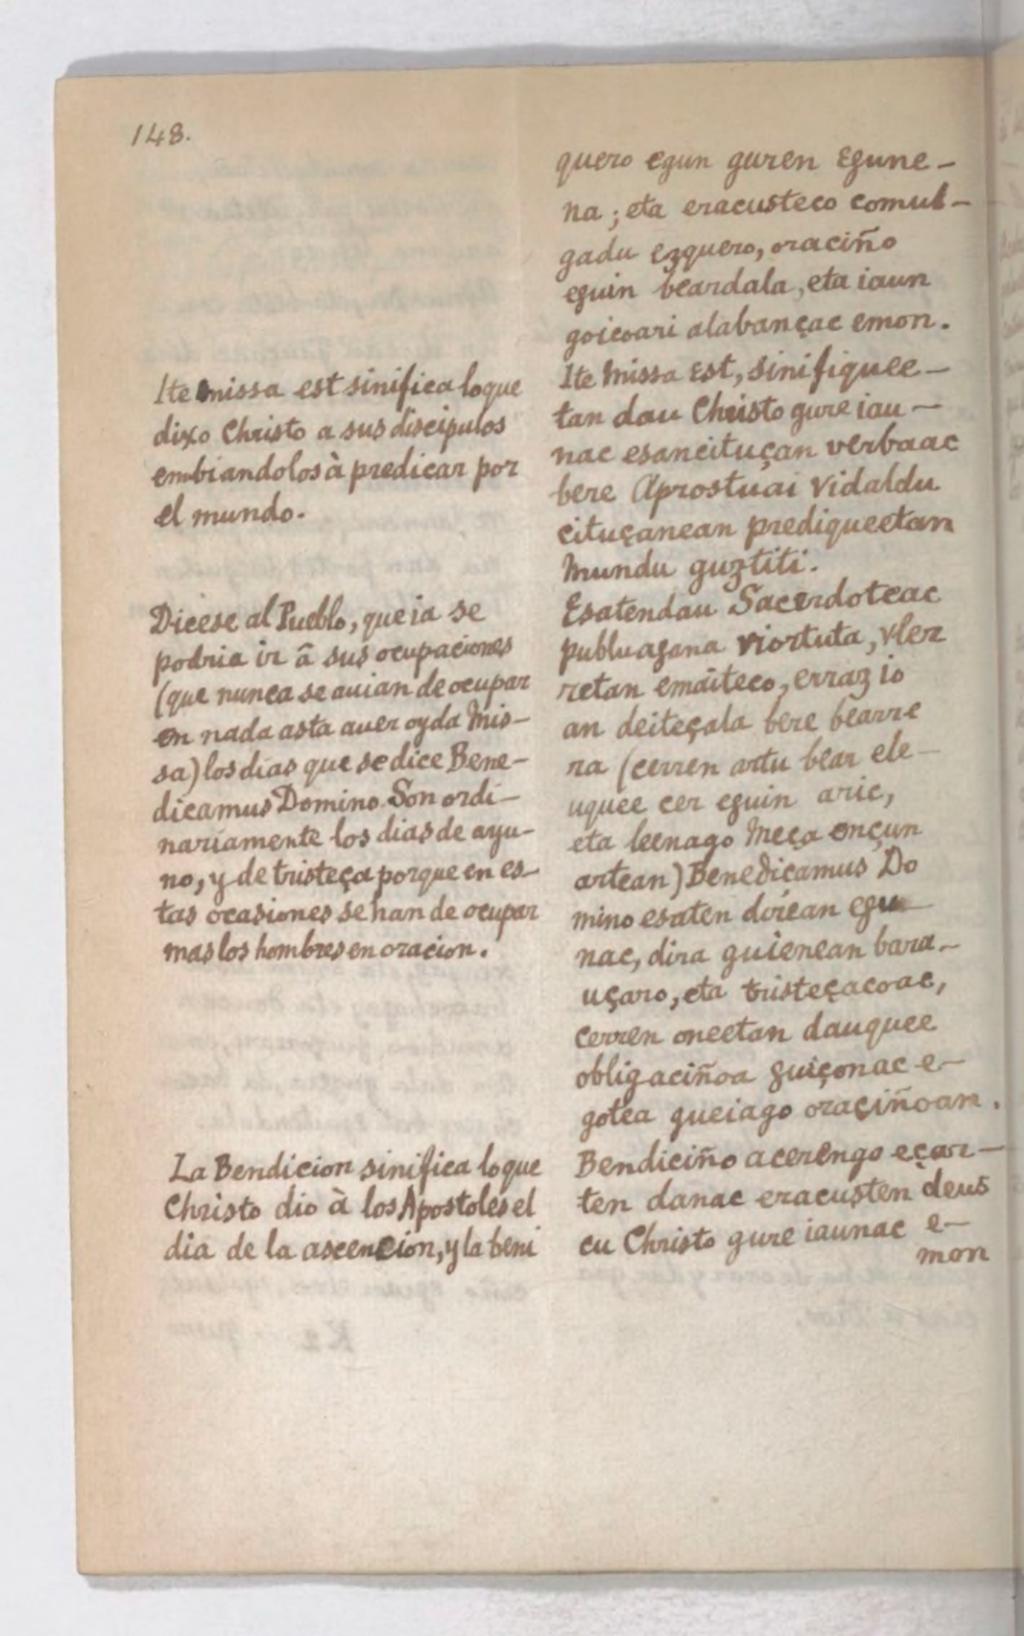 148.
Ite missa est sinifica loque
dixo Christo a sus discipulos
embiandolos à predicar por
el mundo.
Dicese al Pueblo, que ia se
podria ir â sus ocupaciones
(que nunca se auian de ocupar
en nada asta auer oyda Mis-
sa) los dias que se dice Bene-
dicamus Domino. Son ordi-
nariamente los dias de ayu-
no, y de tristeça porque en es-
tas ocasiones se han de ocupar
mas los hombres en oracion.
La Bendicion sinifica loque
Christo dio à los Apostoles el
dia de la ascencion, y la beni
quero egun guren Egune-
na; eta eracusteco comul-
gadu ezquero, oraciño
eguin beardala, eta iaun
goicoari alabançac emon.
Ite missa Est, sinifiquee-
tan dau Christo gure iau-
nac esancituçan verbaac
bere Aprostuai vidaldu
cituçanean prediqueetan
Mundu guztiti.
Esatendau Sacerdoteac
publuagana viortuta, vler
retan emaiteco, erraz io
an deiteçala bere bearre
ra (cerren artu bear ele-
uquee cer eguin aric,
eta leenago Meça ençun
artean) Benedicamus Do
mino esaten direan egu-
nac, dira guienean bara-
uçaro, eta tristeçacoac,
cerren oneetan dauquee
obligaciñoa guiçonac e-
gotea gueiago oraçiñoan.
Bendiciño acerengo eçar-
ten danac eracusten deus
cu Christo gure iaunac e-
mon